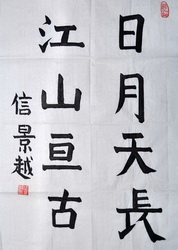 日月天長
江山亘古
信景越